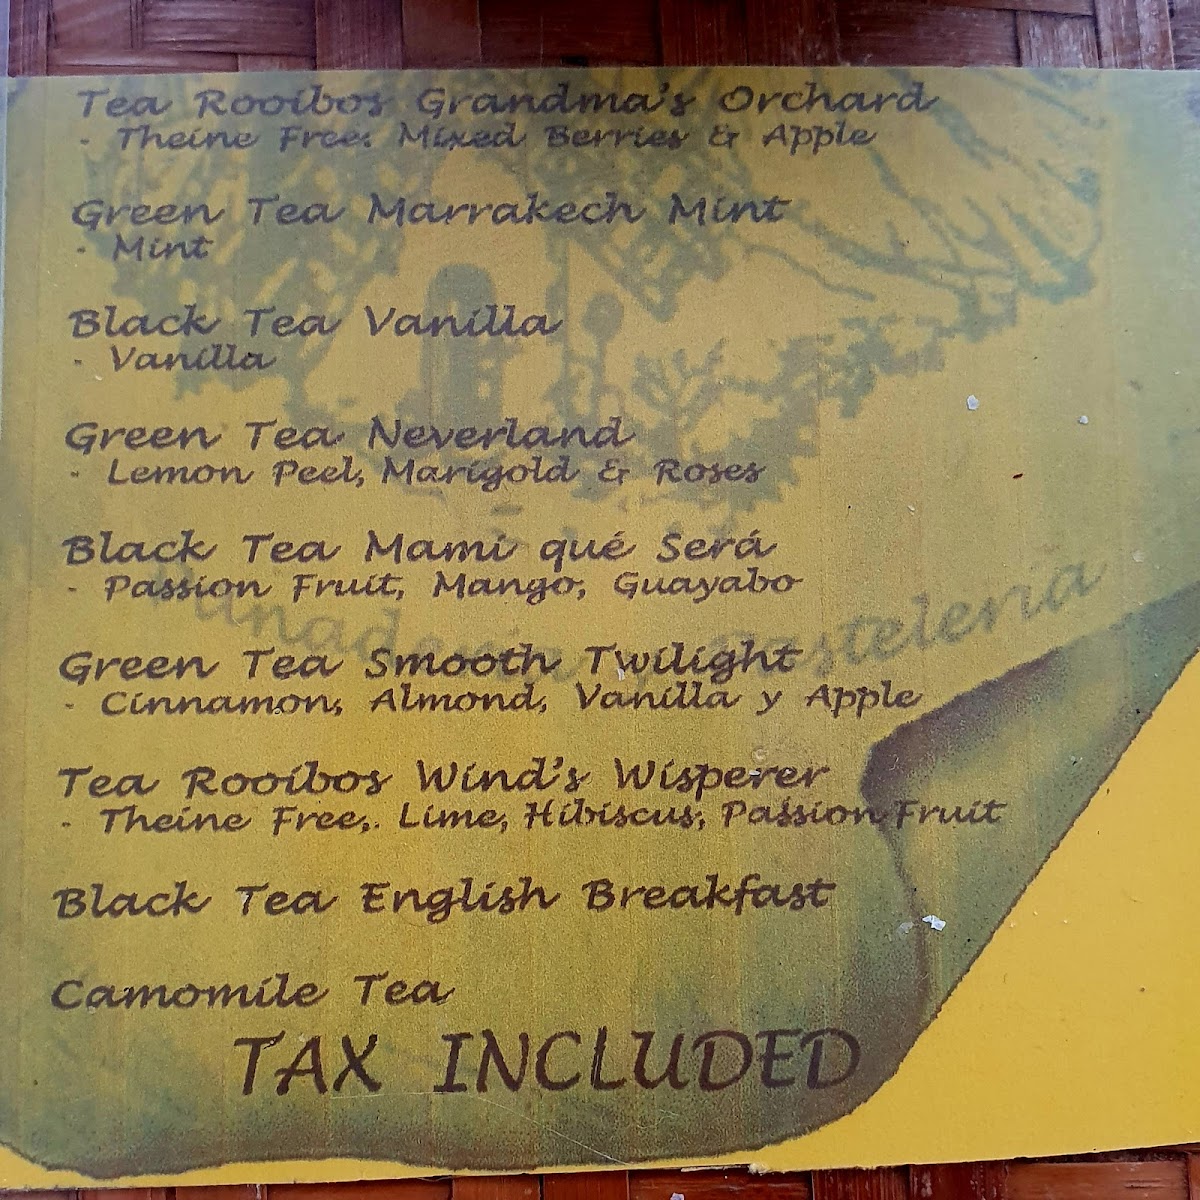 Tea Rooibos Grandma's Orchard
- Theine Free: Mixed Berries & Apple
Green Tea Marrakech Mint
- Mint
Black Tea Vanilla
- Vanilla
Green Tea Neverland
- Lemon Peel, Marigold & Roses
Black Tea Mami qué Será
- Passion Fruit, Mango, Guayabo
Green Tea Smooth Twilight
- Cinnamon, Almond, Vanilla y Apple
Tea Rooibos Wind's Wisperer
- Theine Free,. Lime, Hibiscus, Passion Fruit
Black Tea English Breakfast
Camomile Tea
TAX INCLUDED